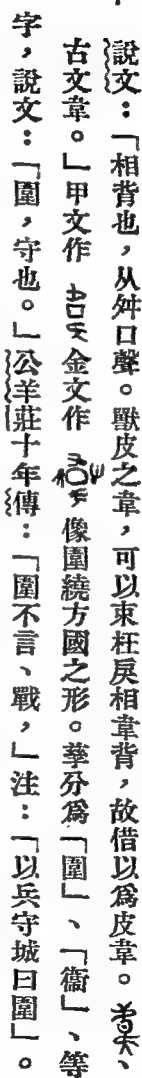 說文：「相背也，从舛口聲。獸皮之韋，可以束枉戾相韋背，故借以爲皮韋。、
古文韋。」甲文作 金文作 像圍繞方國之形。孳分爲「圍」、「衞」、等
字，說文：「圍，守也。」公羊莊十年傳：「圍不言、戰，」注：「以兵守城曰圍」。